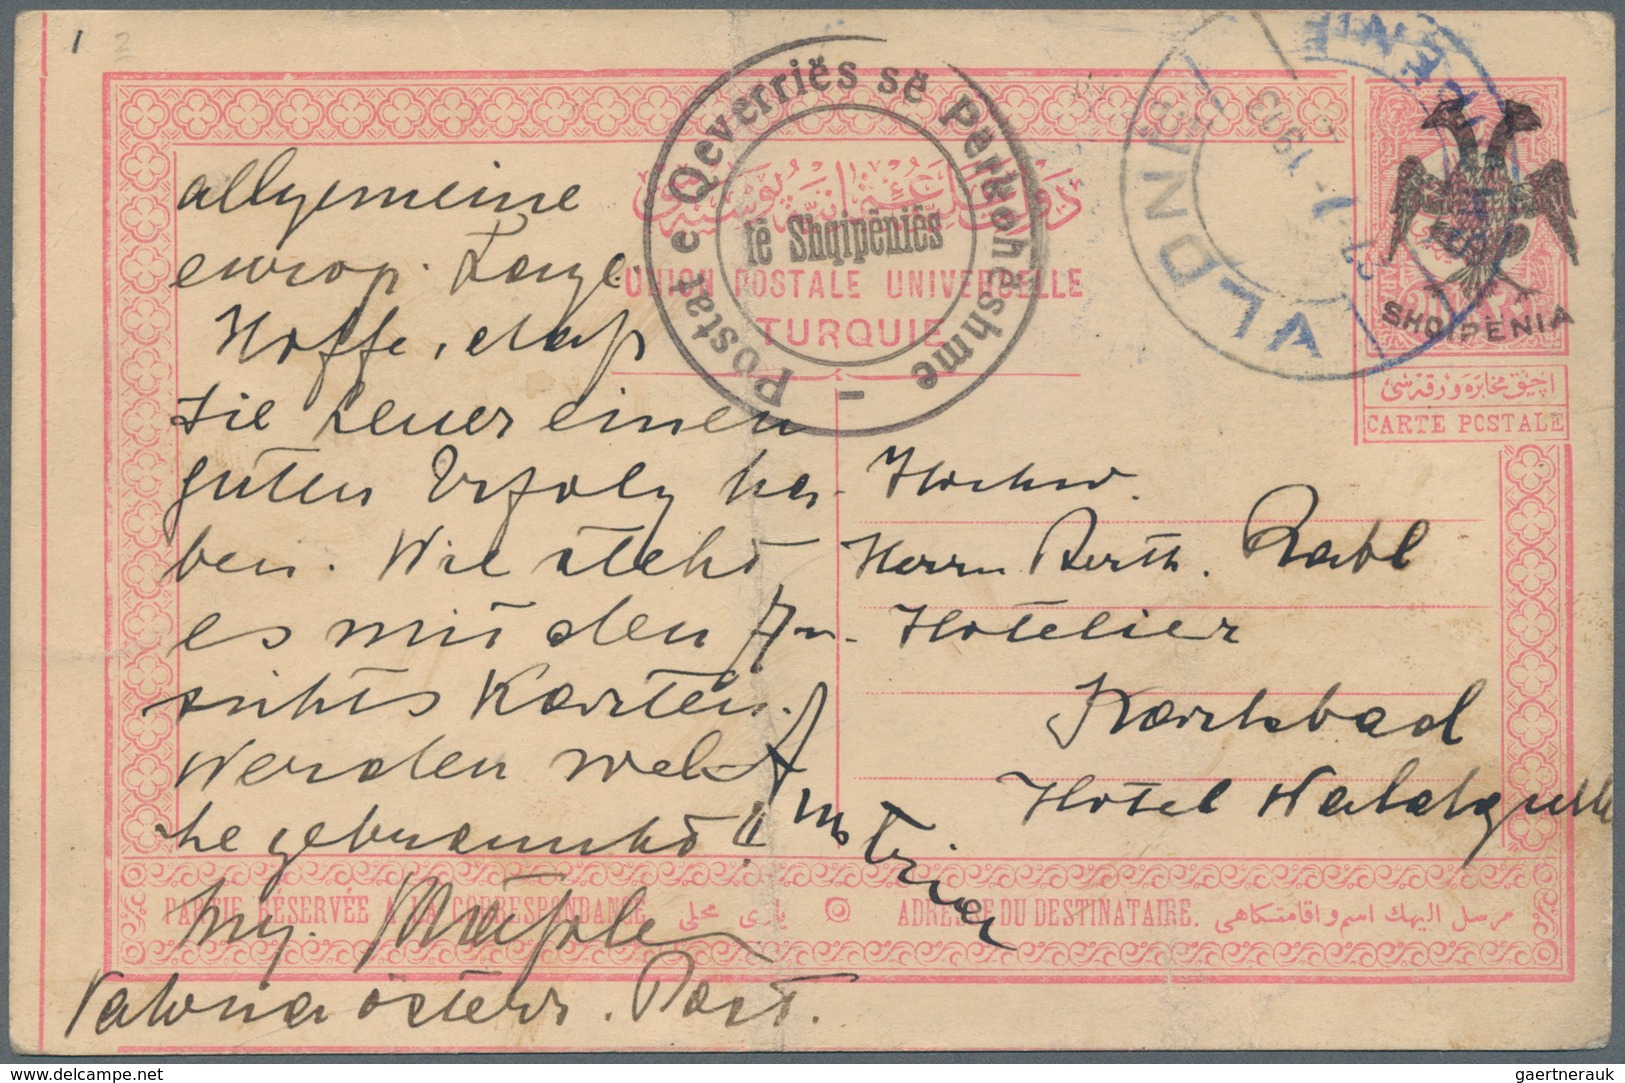 1 2
Postat e Qeverriës së Përkohëshme
të Shqipëniës
UNION POSTALE UNIVERSELLE
TURQUIE
VLONË
1913
SHQIPËNIA
CARTE POSTALE
allgemeine
europ. Lage.
Hoffe, dass
Sie heuer einen
guten Erfolg ha-
ben. Wie steht
es mit den An-
sichts Karten.
Werden welc
he gebraucht!!
Valona österr. Post.
Hochw.
Herrn Berth. Rabl
Hotelier
Karlsbad
Hotel Waldquelle
Austria
PARTIE RÉSERVÉE A LA CORRESPONDANCE
ADRESSE DU DESTINATAIRE.
مرسل اليهك اسم و اقامتكاهى
gaertnerauk